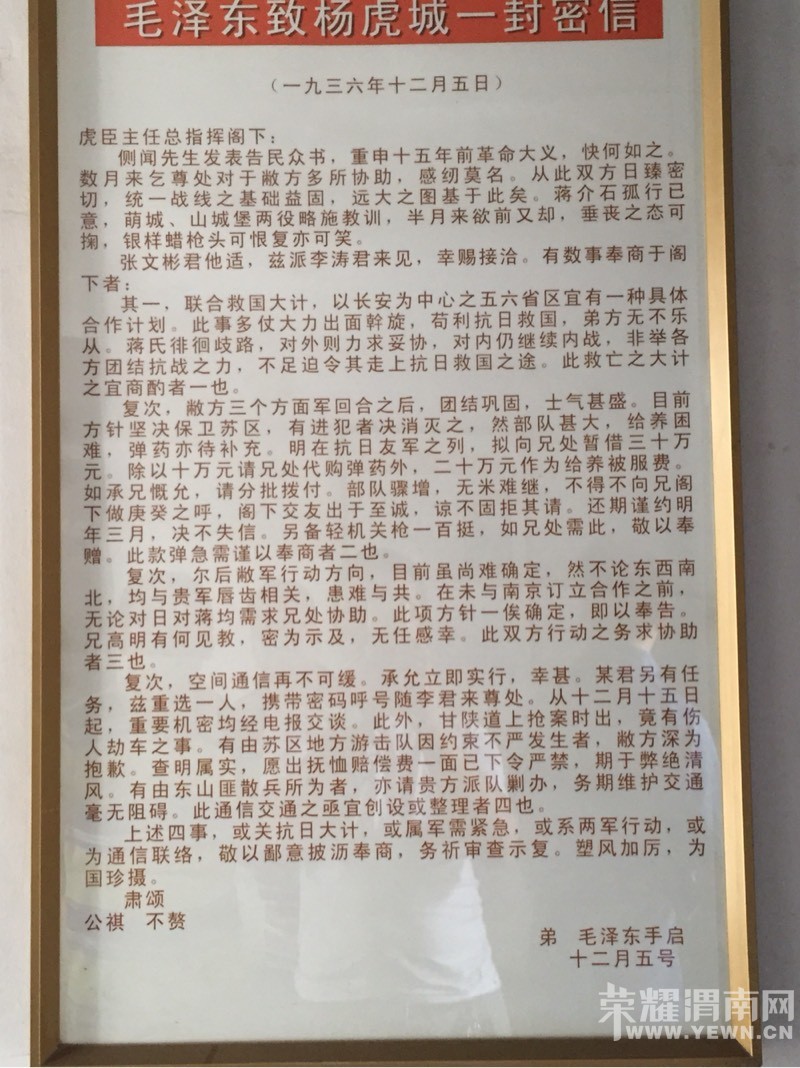 毛泽东致杨虎城一封密信
（一九三六年十二月五日）
虎臣主任总指挥阁下：
侧闻先生发表告民众书，重申十五年前革命大义，快何如之。
数月来乞尊处对于敝方多所协助，感纫莫名。从此双方日臻密
切，统一战线之基础益固，远大之图基于此矣。蒋介石孤行已
意，萌城、山城堡两役略施教训，半月来欲前又却，垂丧之态可
掬，银样蜡枪头可恨复亦可笑。
张文彬君他适，兹派李涛君来见，幸赐接洽。有数事奉商于阁
下者：
其一，联合救国大计，以长安为中心之五六省区宜有一种具体
合作计划。此事多仗大力出面斡旋，苟利抗日救国，弟方无不乐
从。蒋氏徘徊歧路，对外则力求妥协，对内仍继续内战，非举各
方团结抗战之力，不足迫令其走上抗日救国之途。此救亡之大计
之宜商酌者一也。
复次，敝方三个方面军回合之后，团结巩固，士气甚盛。目前
方针坚决保卫苏区，有进犯者决消灭之，然部队甚大，给养困
难，弹药亦待补充。明在抗日友军之列，拟向兄处暂借三十万
元。除以十万元请兄处代购弹药外，二十万元作为给养被服费。
如承兄慨允，请分批拨付。部队骤增，无米难继，不得不向兄阁
下做庚癸之呼，阁下交友出于至诚，谅不固拒其请。还期谨约明
年三月，决不失信。另备轻机关枪一百挺，如兄处需此，敬以奉
赠。此款弹急需谨以奉商者二也。
复次，尔后敝军行动方向，目前虽尚难确定，然不论东西南
北，均与贵军唇齿相关，患难与共。在未与南京订立合作之前，
无论对日对蒋均需求兄处协助。此项方针一俟确定，即以奉告。
兄高明有何见教，密为示及，无任感幸。此双方行动之务求协助
者三也。
复次，空间通信再不可缓。承允立即实行，幸甚。某君另有任
务，兹重选一人，携带密码呼号随李君来尊处。从十二月十五日
起，重要机密均经电报交谈。此外，甘陕道上抢案时出，竟有伤
人劫车之事。有由苏区地方游击队因约束不严发生者，敝方深为
抱歉。查明属实，愿出抚恤赔偿费一面已下令严禁，期于弊绝清
风。有由东山匪散兵所为者，亦请贵方派队剿办，务期维护交通
毫无阻碍。此通信交通之亟宜创设或整理者四也。
上述四事，或关抗日大计，或属军需紧急，或系两军行动，或
为通信联络，敬以鄙意披沥奉商，务祈审查示复。塑风加厉，为
国珍摄。
肃颂
公祺 不赘
弟 毛泽东手启
十二月五号
荣耀渭南网
WWW.YEWN.CN